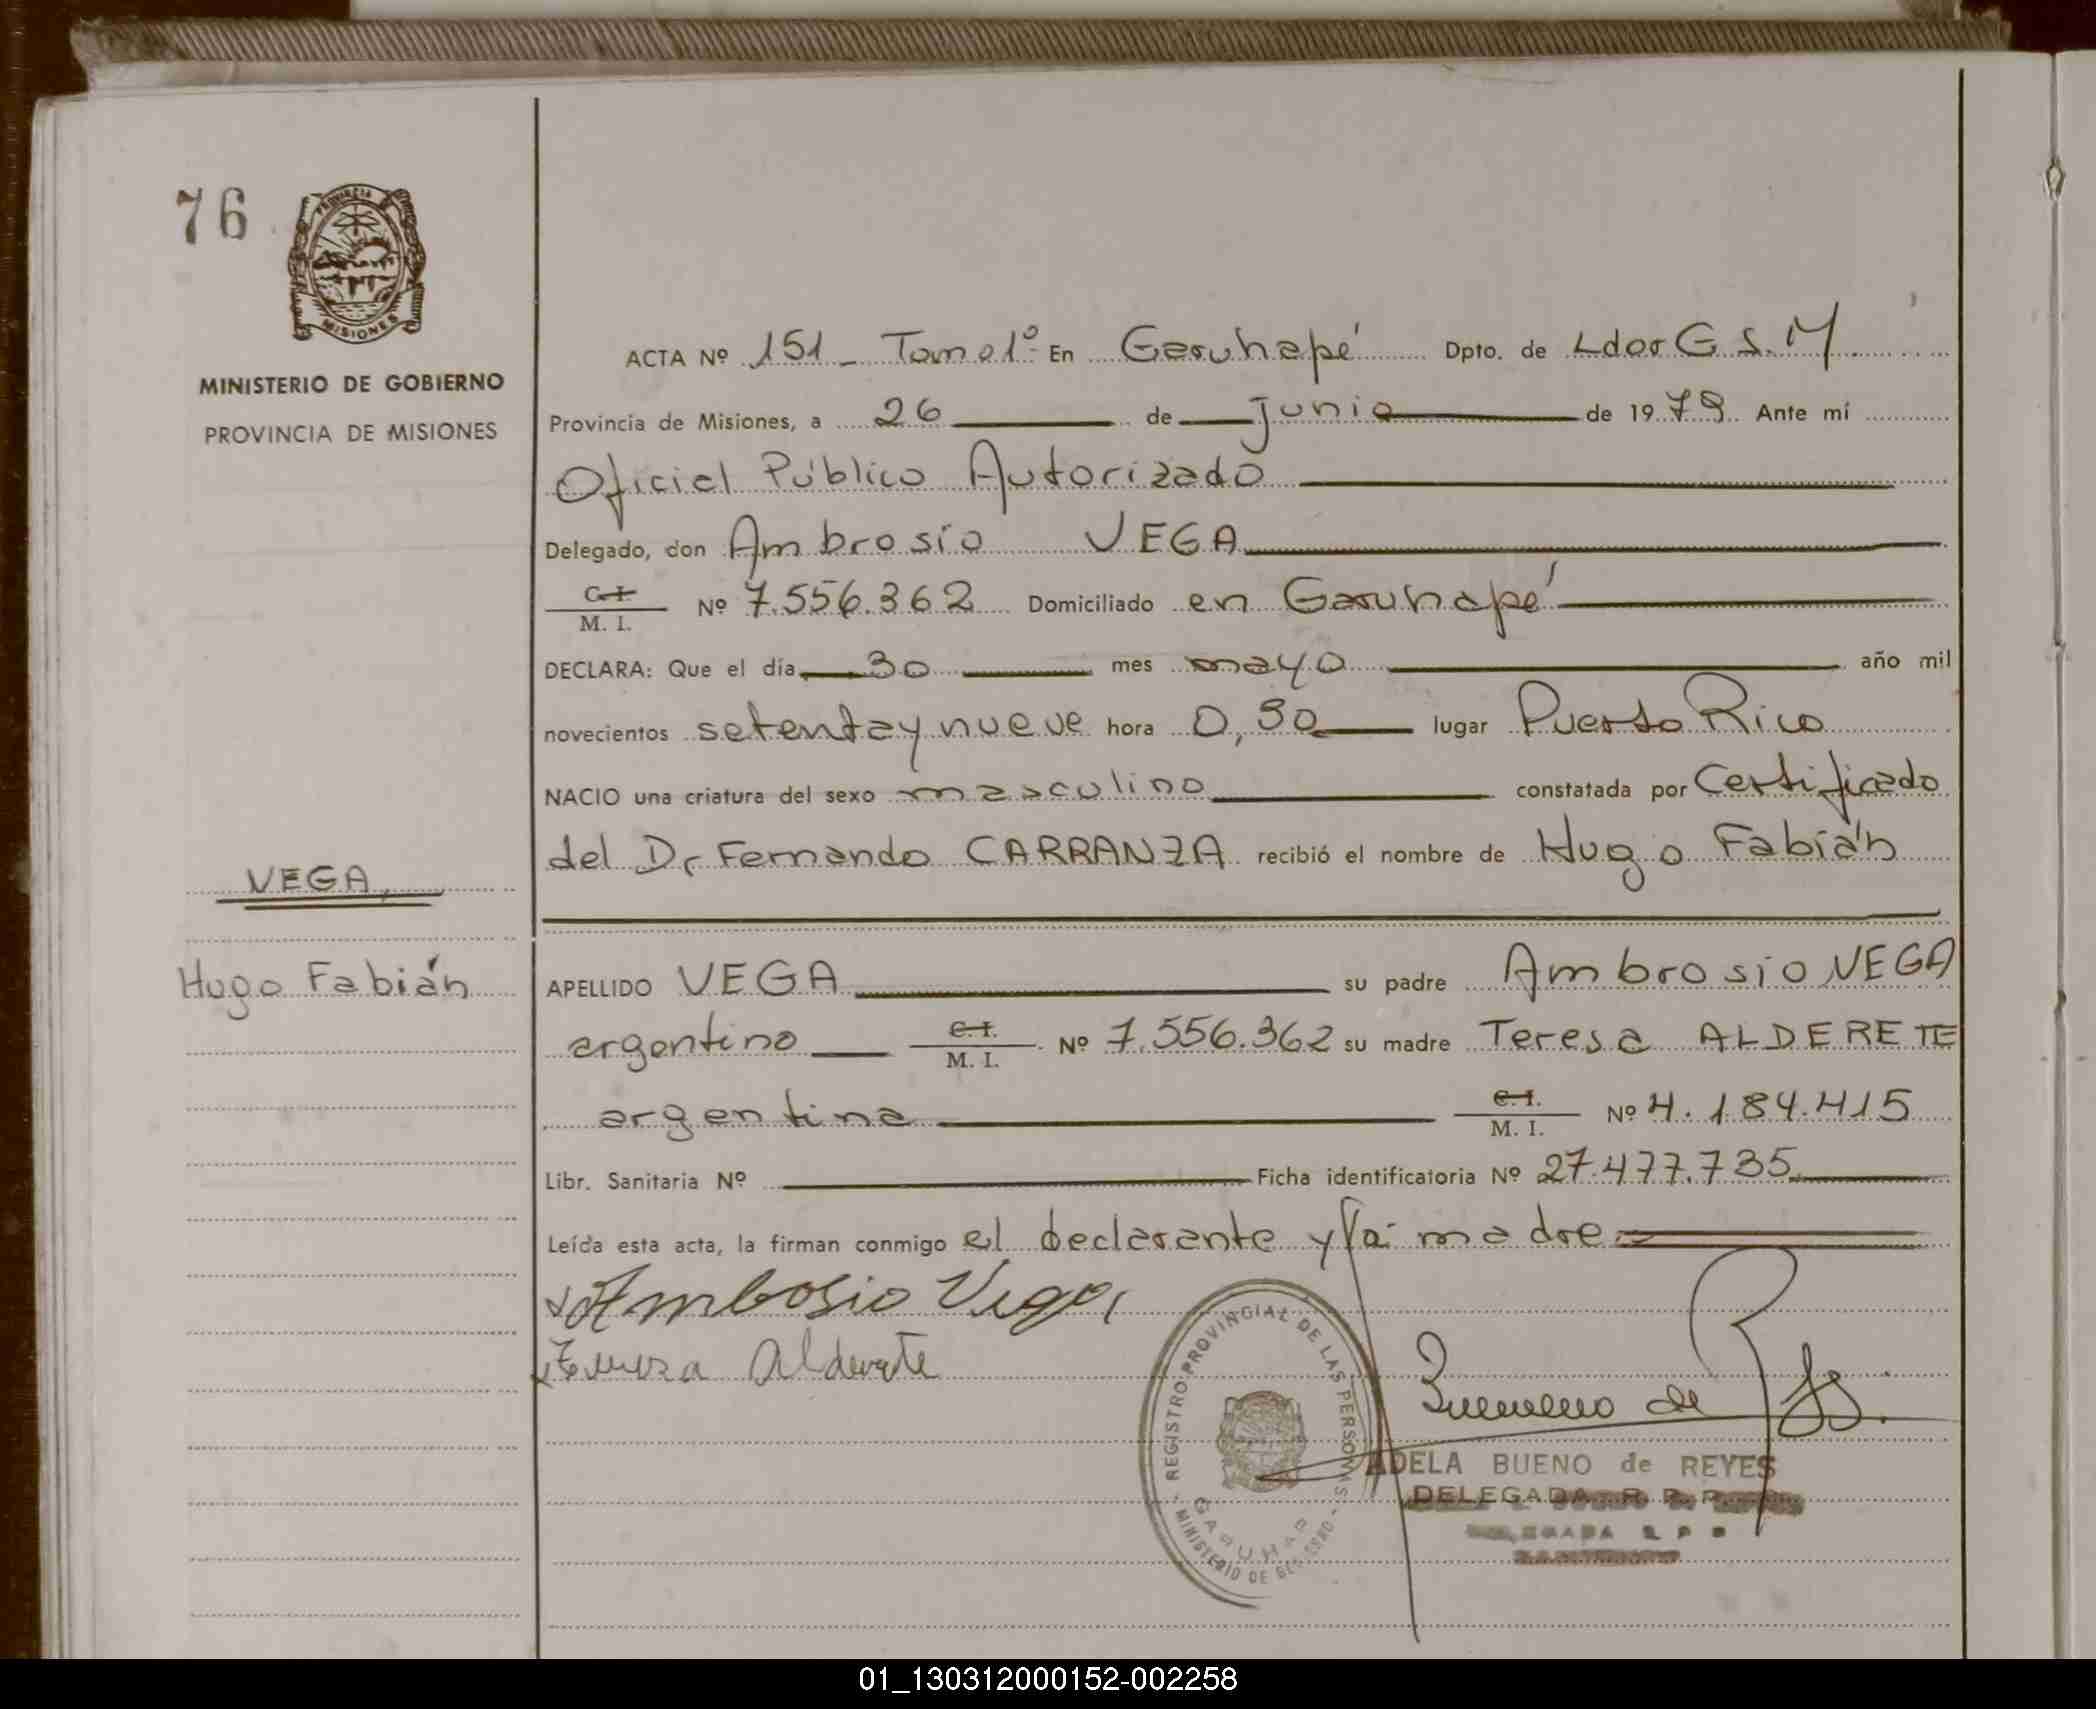 76
PROVINCIA
MISIONES
MINISTERIO DE GOBIERNO
PROVINCIA DE MISIONES
VEGA,
Hugo Fabián
ACTA Nº 151 - Tomo 1º - En Garuhapé Dpto. de Ldor G. S. M
Provincia de Misiones, a 26 de junio de 1979. Ante mí
Oficial Público Autorizado
Delegado, don Ambrosio VEGA
C.I. M. I. Nº 7.556.362 Domiciliado en Garuhapé
DECLARA: Que el día 30 mes mayo año mil
novecientos setenta y nueve hora 0,30 lugar Puerto Rico
NACIO una criatura del sexo masculino constatada por Certificado
del Dr Fernando CARRANZA recibió el nombre de Hugo Fabián
APELLIDO VEGA su padre Ambrosio VEGA
argentino C.I. M. I. Nº 7.556.362 su madre Teresa ALDERETE
argentina C.I. M. I. Nº 4.184.415
Libr. Sanitaria Nº Ficha identificatoria Nº 27.477.735
Leída esta acta, la firman conmigo el declarante y la madre
Ambosio Vega
Tereza Alderete
REGISTRO PROVINCIAL DE LAS PERSONAS
MINISTERIO DE GOBIERNO
ADELA BUENO de REYES
DELEGADA R. P. P.
DELEGADA R P P
01_130312000152-002258